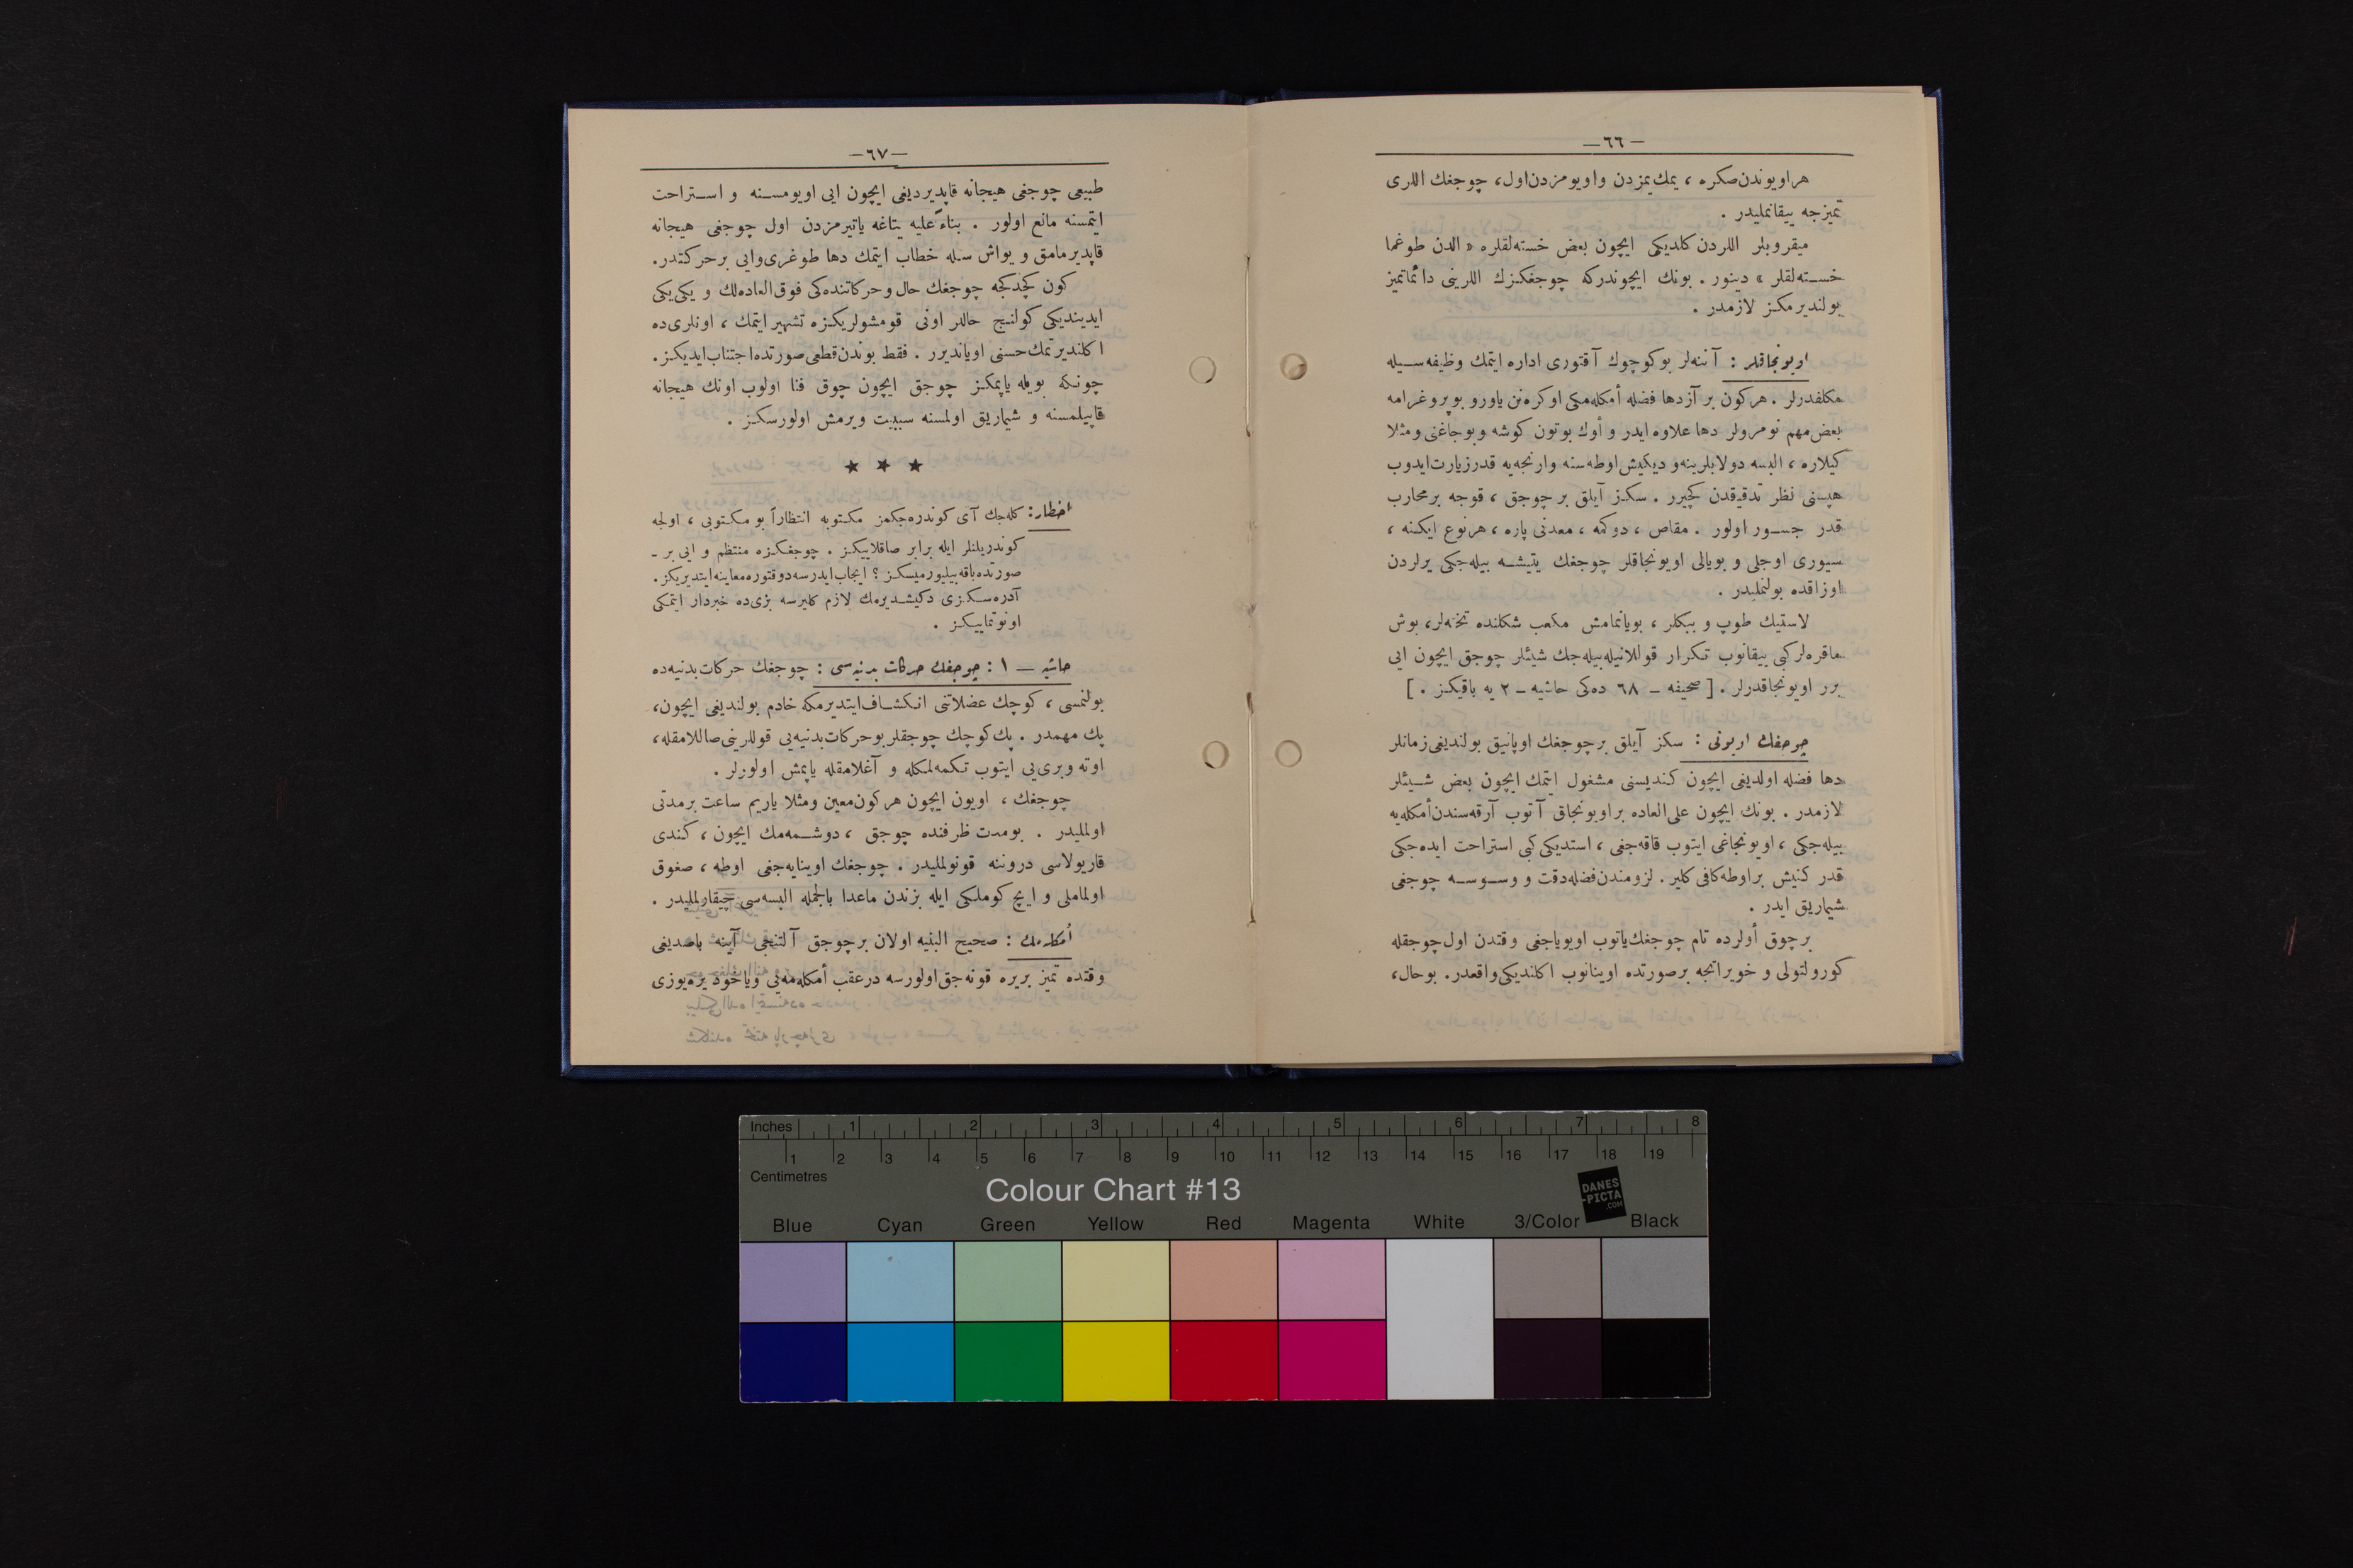 — ٦٦ —
هراویوندن صكره ، یمك یمزدن واویومزدن اول ، چوجغك اللری
تمیزجه ییقانملیدر .
میقروبلر اللردن كلدیكی ایچون بعض خسته‌لقلره « الدن طوغما
خسته‌لقلر » دینور . بونك ایچوندركه چوجغكزك اللرینی دائما تمیز
بولندیرمكز لازمدر .
اویونجاقلر : آننه‌لر بوكوچوك آقتوری اداره ایتمك وظیفه‌سیله
مكلفدرلر . هركون بر آزدها فضله أمكله‌مكی اوكره‌نن یاورو بوپروغرامه
بعض مهم نومرولر دها علاوه ایدر و أوك بوتون كوشه وبوجاغنی ومثلا
كیلاره ، البسه دولابلرینه و دیكیش اوطه‌سنه وارنجه‌یه قدر زیارت ایدوب
هپسنی نظر تدقیقدن كچیرر . سكز آیلق بر چوجق ، قوجه بر محارب
قدر جسور اولور . مقاص ، دوكمه ، معدنی پاره ، هرنوع ایكنه ،
سیوری اوجلی و بویالی اویونجاقلر چوجغك یتیشه بیله‌جكی یرلردن
اوزاقده بولنملیدر .
لاستیك طوپ و ببكلر ، بویانمامش مكعب شكلنده تخته‌لر ، بوش
ماقره‌لر كبی ییقانوب تكرار قوللانیله‌بیله‌جك شیئلر چوجق ایچون ایی
برر اویونجاقدرلر . [ صحیفه — ٦٨ ده‌كی حاشیه — ٢ یه باقیكز . ]
چوجغك اویونی : سكز آیلق بر چوجغك اویانیق بولندیغی زمانلر
دها فضله اولدیغی ایچون كندیسنی مشغول ایتمك ایچون بعض شیئلر
لازمدر . بونك ایچون علی‌العاده بر اویونجاق آتوب آرقه‌سندن أمكله‌یه
بیله‌جكی ، اویونجاغی ایتوب قاقه‌جغی ، استدیكی كبی استراحت ایده‌جكی
قدر كنیش بر اوطه كافی كلیر . لزومندن فضله دقت و وسوسه چوجغی
شیماریق ایدر .
بر چوق أولرده تام چوجغك یاتوب اویویاجغی وقتدن اول چوجقله
كورولتولی و خویراتجه بر صورتده اوینانوب اكلندیكی واقعدر . بوحال ،
— ٦٧ —
طبیعی چوجغی هیجانه قاپدیردیغی ایچون ایی اویومسنه و استراحت
ایتمسنه مانع اولور . بناءً علیه یتاغه یاتیرمزدن اول چوجغی هیجانه
قاپدیرمامق و یواش سله خطاب ایتمك دها طوغری وایی بر حركتدر .
كون كچدكجه چوجغك حال و حركاتنده‌كی فوق‌العاده‌لك و یكی یكی
ایدیندیكی كولنج حاللر اونی قومشولریكزه تشهیر ایتمك ، اونلری‌ده
اكلندیرتمك حسنی اویاندیرر . فقط بوندن قطعی صورتده اجتناب ایدیكز .
چونكه بویله یاپمكز چوجق ایچون چوق فنا اولوب اونك هیجانه
قاپیلمسنه و شیماریق اولمسنه سببیت ویرمش اولورسكز .
★ ★ ★
اخطار : كله‌جك آی كوندره‌جكمز مكتوبه انتظاراً بو مكتوبی ، اولجه
كوندریلنلر ایله برابر صاقلاییكز . چوجغكزه منتظم و ایی بر –
صورتده باقه‌بیلیورمیسكز ؟ ایجاب ایدرسه دوقتوره معاینه ایتدیریكز .
آدره‌سكزی دكیشدیرمك لازم كلیرسه بزی‌ده خبردار ایتمكی
اونوتماییكز .
حاشیه — ١ : چوجغك حركات بدنیه‌سی : چوجغك حركات بدنیه‌ده
بولنمسی ، كوچك عضلاتنی انكشاف ایتدیرمكه خادم بولندیغی ایچون ،
پك مهمدر . پك كوچك چوجقلر بو حركات بدنیه‌یی قوللرینی صاللامقله ،
اوته وبری‌یی ایتوب تكمه‌لمكله و آغلامقله یاپمش اولورلر .
چوجغك ، اویون ایچون هركون معین ومثلا یاریم ساعت بر مدتی
اولملیدر . بومدت ظرفنده چوجق ، دوشمه‌مك ایچون ، كندی
قاریولاسی دروننه قونولملیدر . چوجغك اوینایه‌جغی اوطه ، صغوق
اولماملی و ایچ كوملكی ایله بزندن ماعدا بالجمله البسه‌سی چیقارلملیدر .
أمكله‌مك : صحیح البنیه اولان بر چوجق آلتنجی آینه باصدیغی
وقتده تمیز بریره قونه‌جق اولورسه درعقب أمكله‌مه‌یی ویاخود یره یوزی
Inches 1 2 3 4 5 6 7 8
1 2 3 4 5 6 7 8 9 10 11 12 13 14 15 16 17 18 19
Centimetres
Colour Chart #13
DANES
-PICTA
.COM
Blue Cyan Green Yellow Red Magenta White 3/Color Black